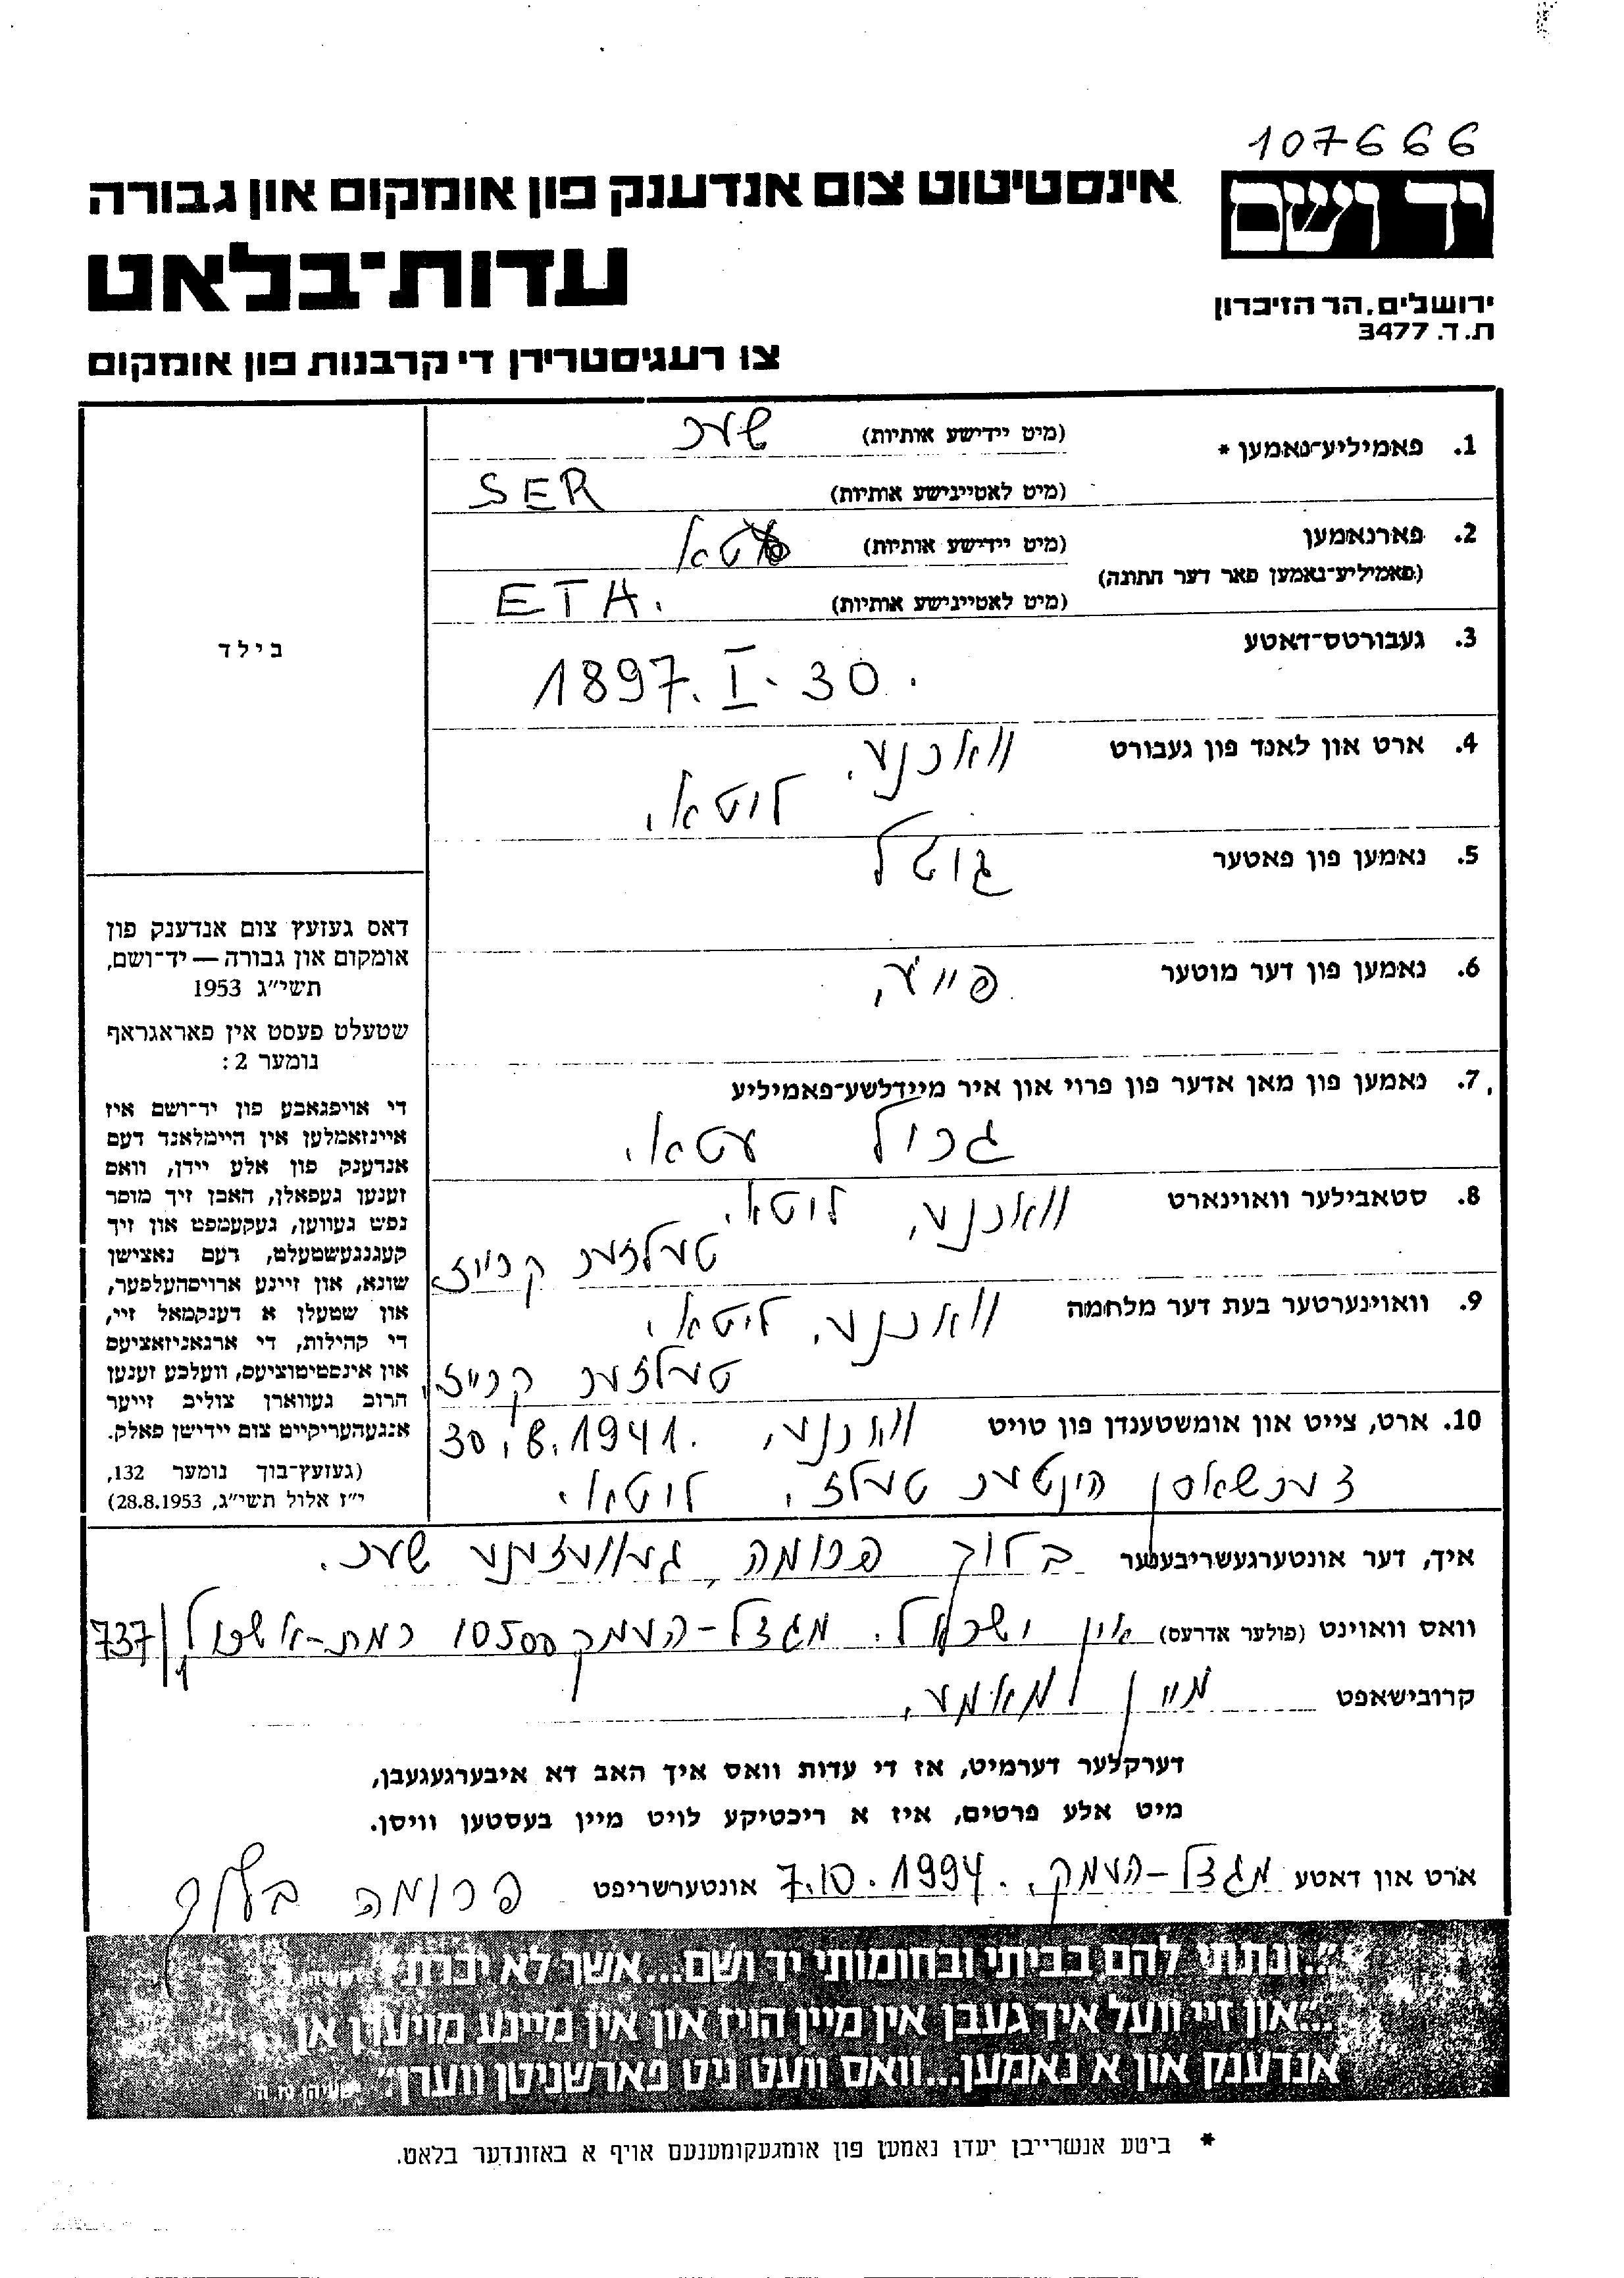 107666
אינסטיטוט צום אנדענק פון אומקום און גבורה
יד ושם
עדות־בלאט
ירושלים, הר הזיכרון
ת.ד. 3477
צו רעגיסטרירן די קרבנות פון אומקום
1. פאמיליע־נאמען * (מיט יידישע אותיות) שער
(מיט לאטייניׁשע אותיות) SER
2. פארנאמען (מיט יידישע אותיות) עטא
(פאמיליע־נאמען פאר דער חתונה)
(מיט לאטיינישע אותיות) ETA.
3. געבורטס־דאטע
1897. I. 30.
4. ארט און לאנד פון געבורט ווארנע,
ליטא,
5. נאמען פון פאטער גוטל
6. נאמען פון דער מוטער פייע,
7. נאמען פון מאן אדער פון פרוי און איר מיידלשע־פאמיליע
עטא,
8. סטאבילער וואוינארט ווארנע, ליטא,
טעלזער קרייז
9. וואוינערטער בעת דער מלחמה ווארנע, ליטא,
טעלזער קרייז,
10. ארט, צייט און אומשטענדן פון טויט ווארנע, 30.8.1941.
דערשאסן הינטער טעלז, ליטא,
בילד
דאס געזעץ צום אנדענק פון
אומקום און גבורה — יד־ושם,
תשי״ג 1953
שטעלט פעסט אין פאראגראף
נומער 2:
די אויפגאבע פון יד־ושם איז
איינזאמלען אין היימלאנד דעם
אנדענק פון אלע יידן, וואס
זענען געפאלן, האבן זיך מוסר
נפש געווען, געקעמפט און זיך
קעגנגעשטעלט, דעם נאצישן
שונא, און זיינע ארויסהעלפער,
און שטעלן א דענקמאל זיי,
די קהילות, די ארגאניזאציעס
און אינסטיטוציעס, וועלכע זענען
חרוב געווארן צוליב זייער
אנגעהעריקייט צום יידישן פאלק.
(געזעץ־בוך נומער 132,
י״ז אלול תשי״ג, 28.8.1953)
איך, דער אונטערגעשריבענער בלוך פרומה, געוועזענע שער.
וואס וואוינט (פולער אדרעס) אין ישראל. מגדל-העמק 10500 רמת-אשכול 737/1
קרובישאפט מיין מאמע,
דערקלער דערמיט, אז די עדות וואס איך האב דא איבערגעגעבן,
מיט אלע פרטים, איז א ריכטיקע לויט מיין בעסטען וויסן.
ארט און דאטע מגדל-העמק, 7.10.1994. אונטערשריפט פרומה בלוך
״...ונתתי להם בביתי ובחומותי יד ושם...אשר לא יכרת״
״...און זיי וועל איך געבן אין מיין הויז און אין מיינע מויערן אן
אנדענק און א נאמען...וואס וועט ניט פארשניטן ווערן.״ ישעיהו נו ה׳
* ביטע אנשרייבן יעדן נאמען פון אומגעקומענעם אויף א באזונדער בלאט.